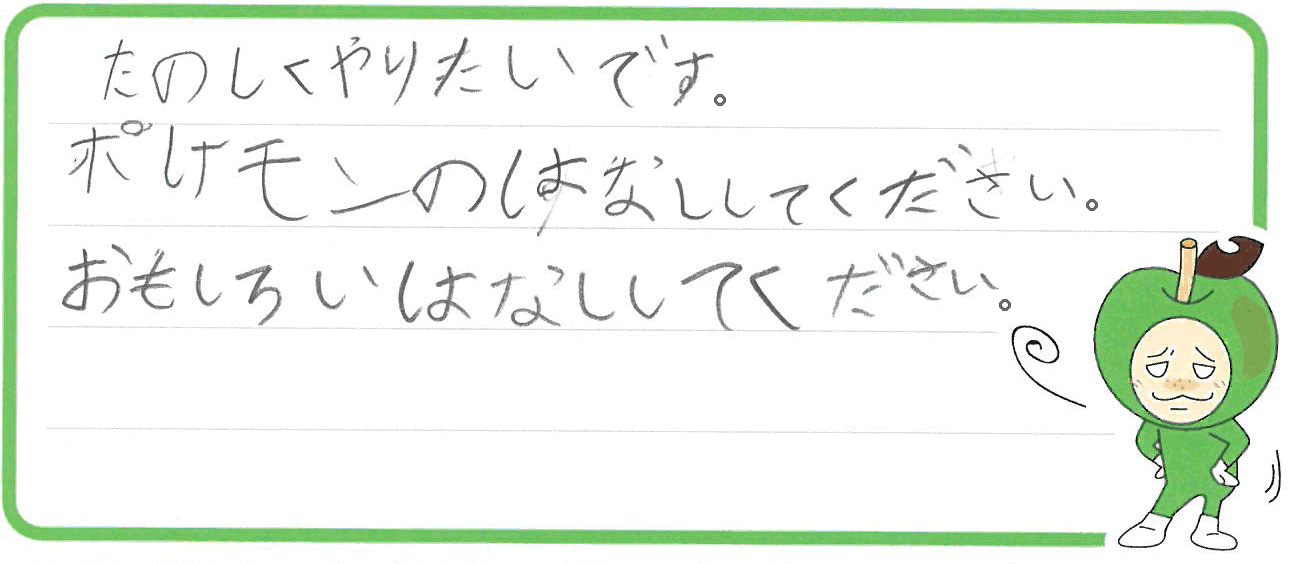 たのしくやりたいです。
ポけモンのはなししてください。
おもしろいはなししてください。